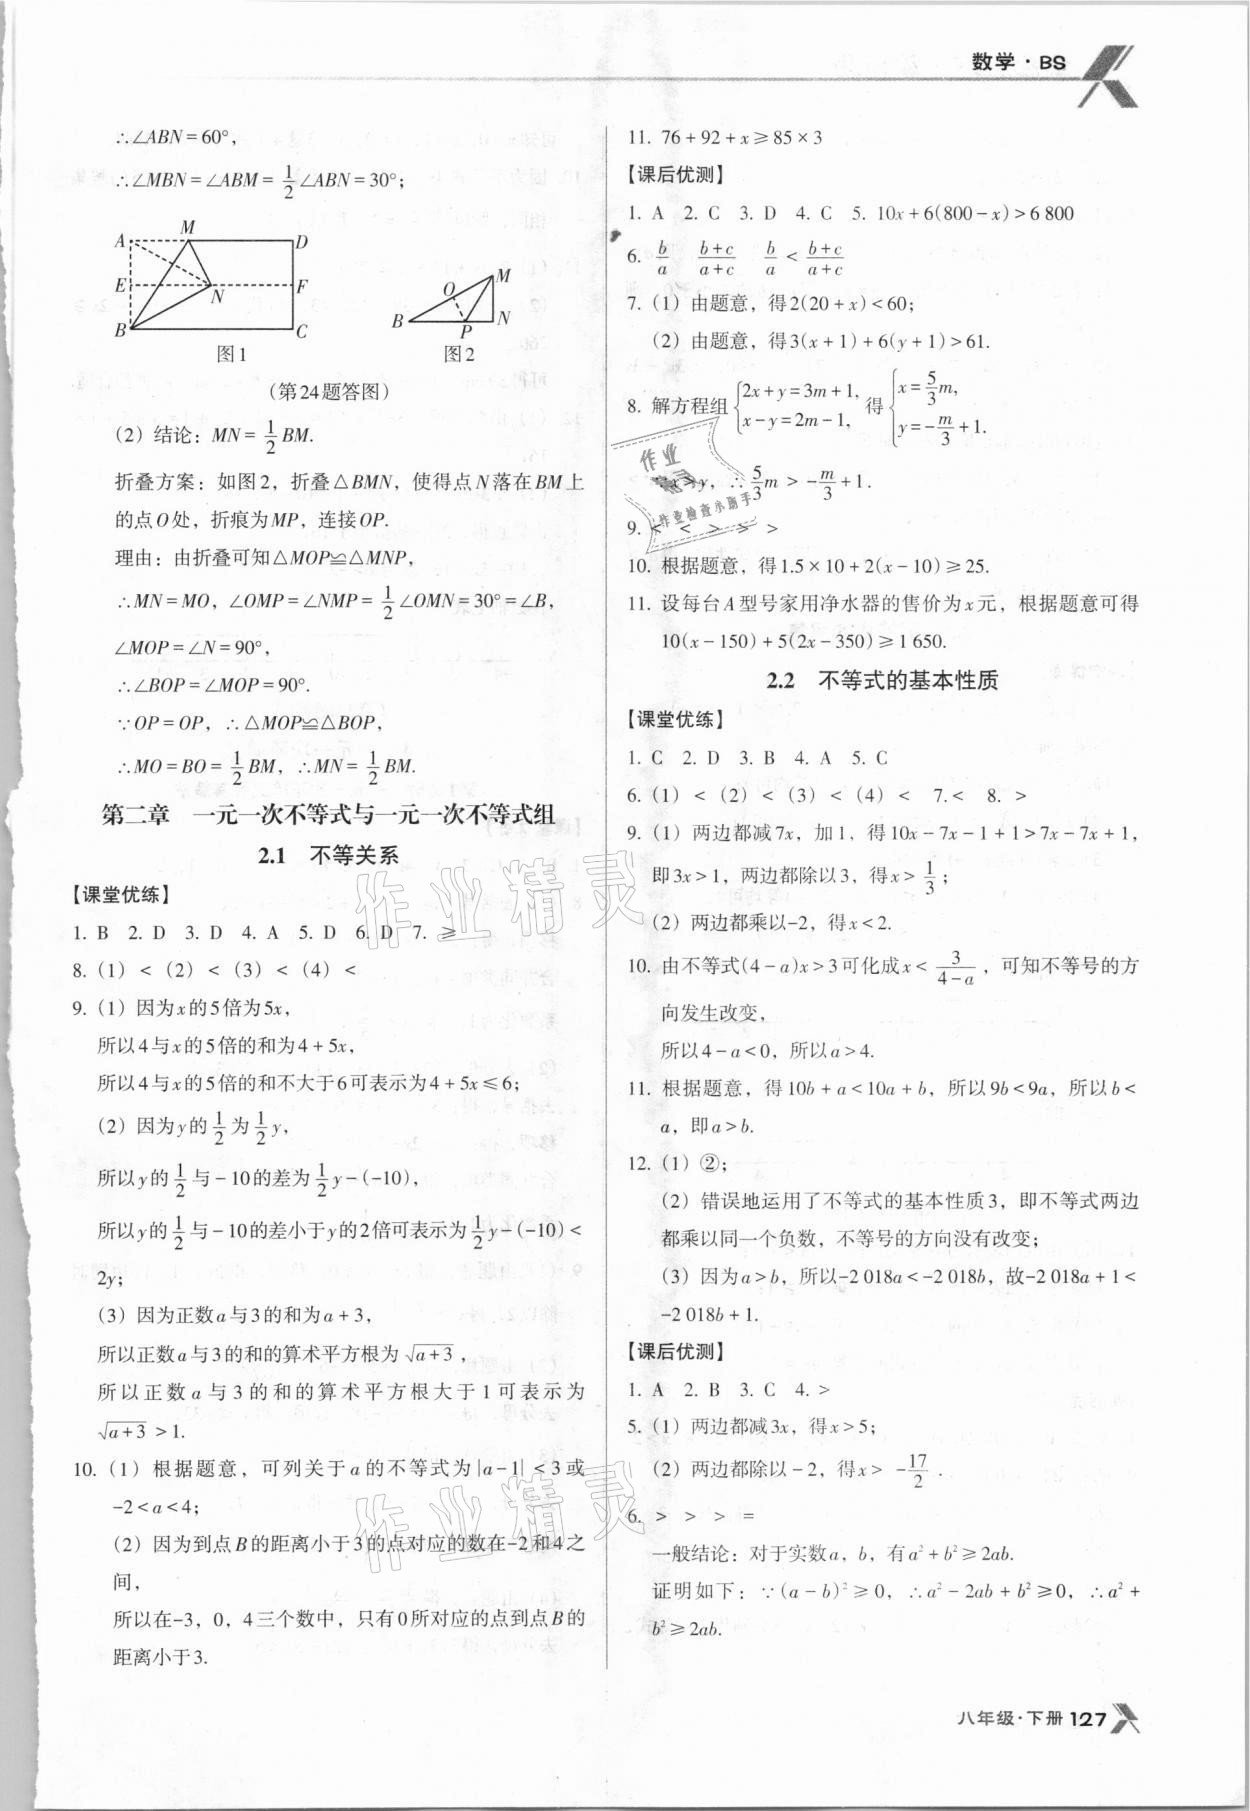 数学·BS
∴∠ABN=60°,
∴∠MBN=∠ABM=1/2∠ABN=30°;
A M D
E N F
B C
图1
O M
B P N
图2
(第24题答图)
(2) 结论：MN=1/2BM.
折叠方案：如图2，折叠△BMN，使得点N落在BM上
的点O处，折痕为MP，连接OP.
理由：由折叠可知△MOP≌△MNP,
∴MN=MO，∠OMP=∠NMP=1/2∠OMN=30°=∠B,
∠MOP=∠N=90°,
∴∠BOP=∠MOP=90°.
∵OP=OP，∴△MOP≌△BOP,
∴MO=BO=1/2BM，∴MN=1/2BM.
第二章　一元一次不等式与一元一次不等式组
2.1　不等关系
【课堂优练】
1. B　2. D　3. D　4. A　5. D　6. D　7. ≥
8. (1) < (2) < (3) < (4) <
9. (1) 因为x的5倍为5x,
所以4与x的5倍的和为4+5x,
所以4与x的5倍的和不大于6可表示为4+5x≤6;
(2) 因为y的1/2为1/2y,
所以y的1/2与-10的差为1/2y-(-10),
所以y的1/2与-10的差小于y的2倍可表示为1/2y-(-10)<
2y;
(3) 因为正数a与3的和为a+3,
所以正数a与3的和的算术平方根为√(a+3),
所以正数a与3的和的算术平方根大于1可表示为
√(a+3)>1.
10. (1) 根据题意，可列关于a的不等式为|a-1|<3或
-2<a<4;
(2) 因为到点B的距离小于3的点对应的数在-2和4之
间,
所以在-3，0，4三个数中，只有0所对应的点到点B的
距离小于3.
11. 76+92+x≥85×3
【课后优测】
1. A　2. C　3. D　4. C　5. 10x+6(800-x)>6 800
6. b/a　(b+c)/(a+c)　b/a<(b+c)/(a+c)
7. (1) 由题意，得2(20+x)<60;
(2) 由题意，得3(x+1)+6(y+1)>61.
8. 解方程组{2x+y=3m+1, x-y=2m-1, 得{x=5/3m, y=-m/3+1.
x>y，∴5/3m>-m/3+1.
9. < < > > >
10. 根据题意，得1.5×10+2(x-10)≥25.
11. 设每台A型号家用净水器的售价为x元，根据题意可得
10(x-150)+5(2x-350)≥1 650.
2.2　不等式的基本性质
【课堂优练】
1. C　2. D　3. B　4. A　5. C
6. (1) < (2) < (3) < (4) <　7. <　8. >
9. (1) 两边都减7x，加1，得10x-7x-1+1>7x-7x+1,
即3x>1，两边都除以3，得x>1/3;
(2) 两边都乘以-2，得x<2.
10. 由不等式(4-a)x>3可化成x<3/(4-a)，可知不等号的方
向发生改变,
所以4-a<0，所以a>4.
11. 根据题意，得10b+a<10a+b，所以9b<9a，所以b<
a，即a>b.
12. (1) ②;
(2) 错误地运用了不等式的基本性质3，即不等式两边
都乘以同一个负数，不等号的方向没有改变;
(3) 因为a>b，所以-2 018a<-2 018b，故-2 018a+1<
-2 018b+1.
【课后优测】
1. A　2. B　3. C　4. >
5. (1) 两边都减3x，得x>5;
(2) 两边都除以-2，得x>-17/2.
6. > > > =
一般结论：对于实数a，b，有a²+b²≥2ab.
证明如下：∵(a-b)²≥0，∴a²-2ab+b²≥0，∴a²+
b²≥2ab.
作业精灵
作业精灵
作业
作业检查小助手
八年级·下册 127